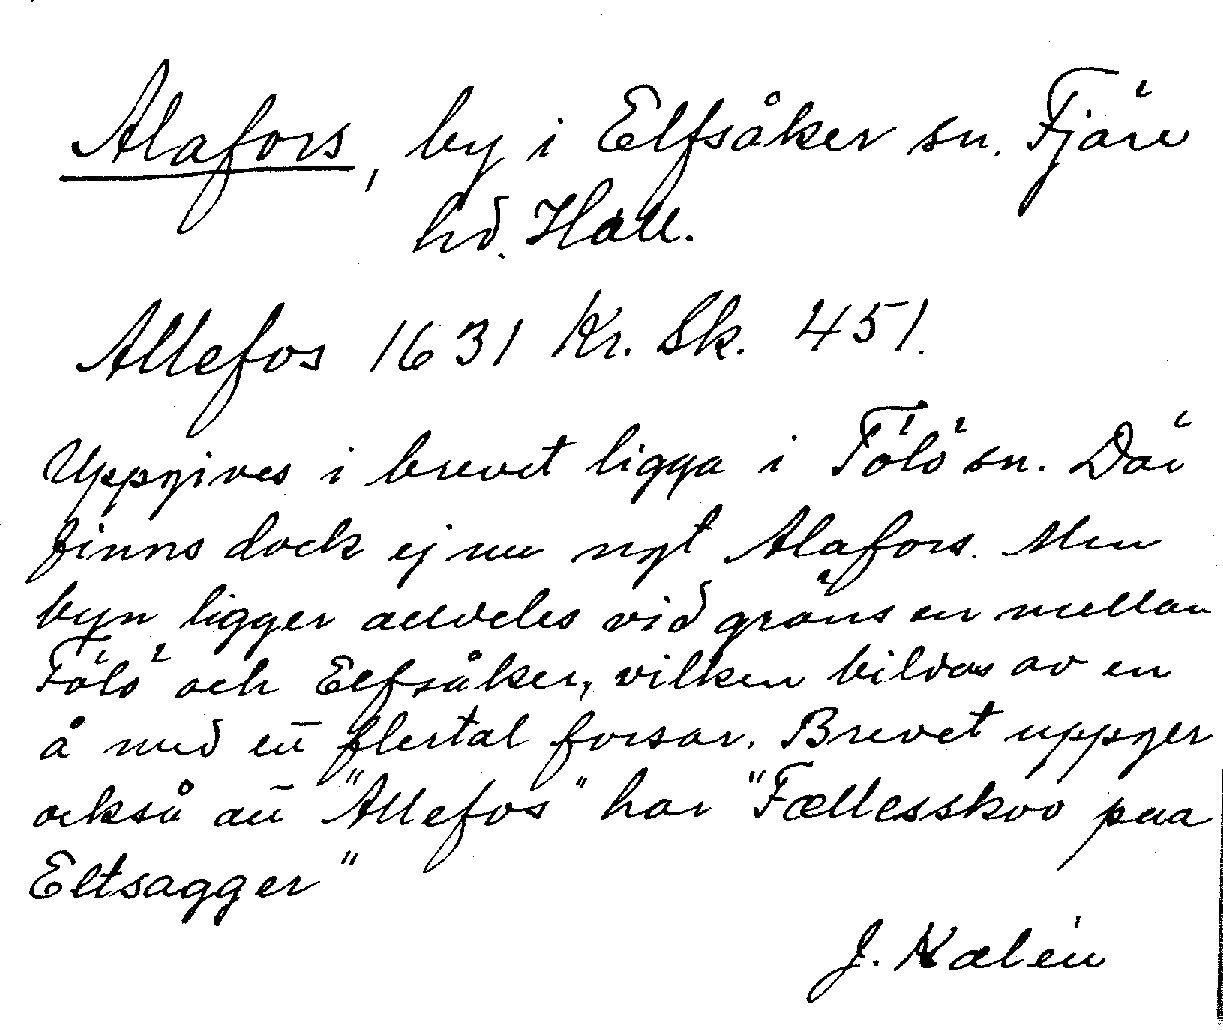 Alafors, by i Elfsåker sn. Fjäre
hd. Hall.
Allefos 1631 Kr. Sk. 451.
Uppgives i brevet ligga i Fölö sn. Där
finns dock ej nu ngt Alafors. Men
byn ligger alldeles vid gränsen mellan
Fölö och Elfsåker, vilken bildas av en
å med ett flertal forsar. Brevet uppger
också att "Allefos" har "Fællesskov paa
Eltsagger"
J. Kalén